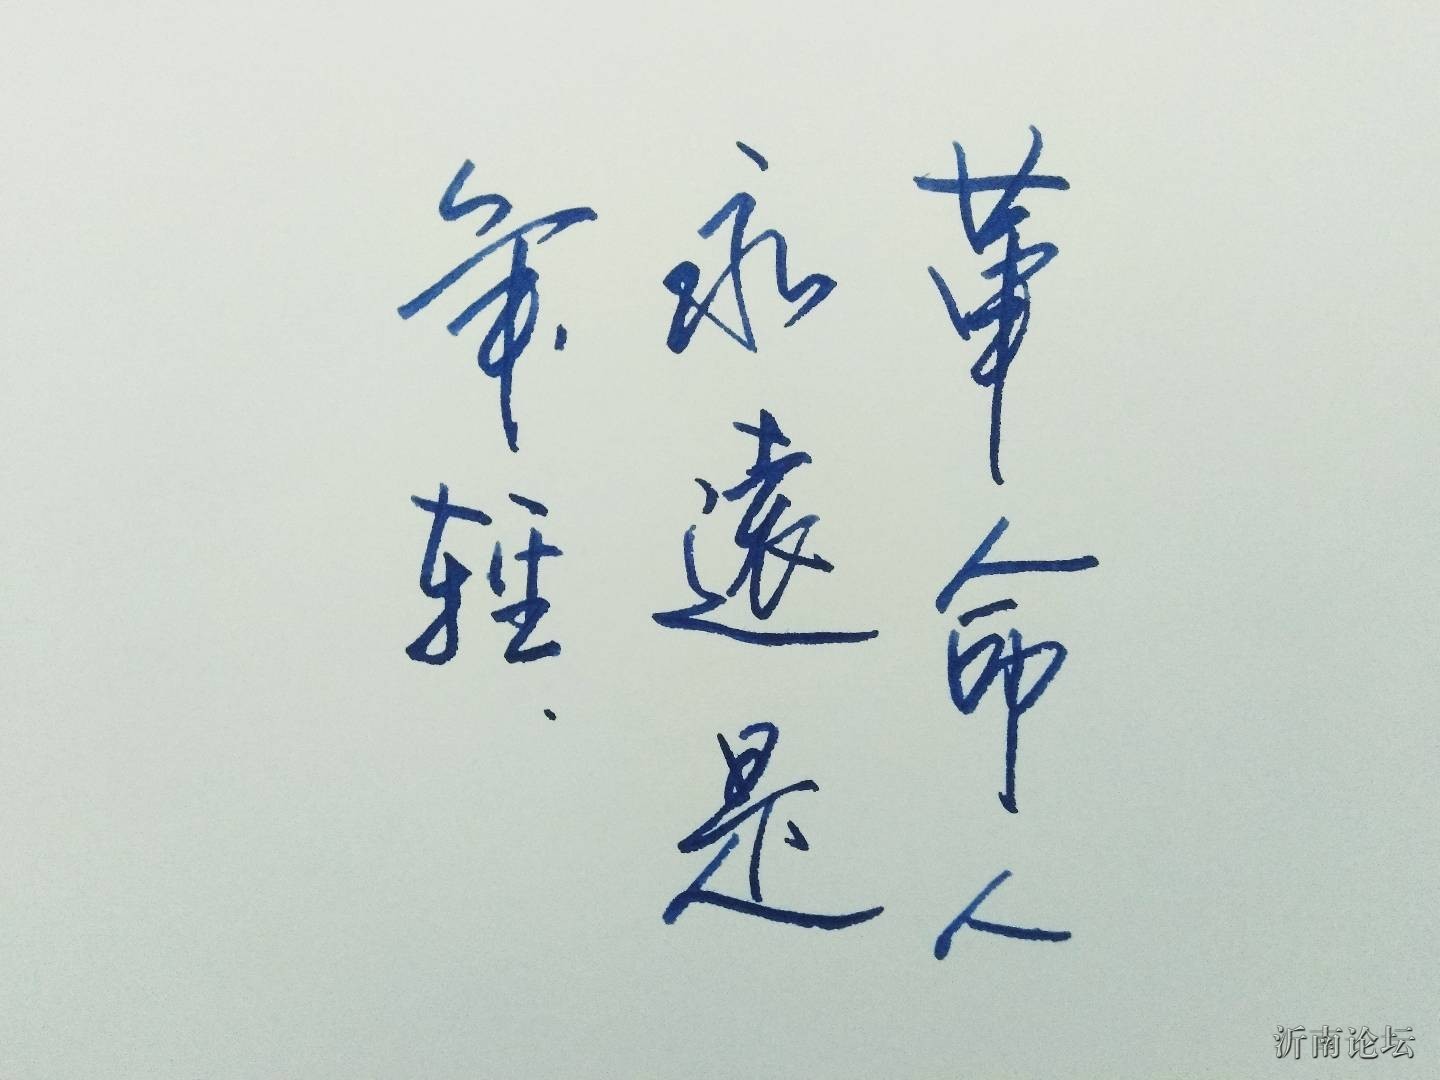 革命人
永遠是
年輕
沂南论坛